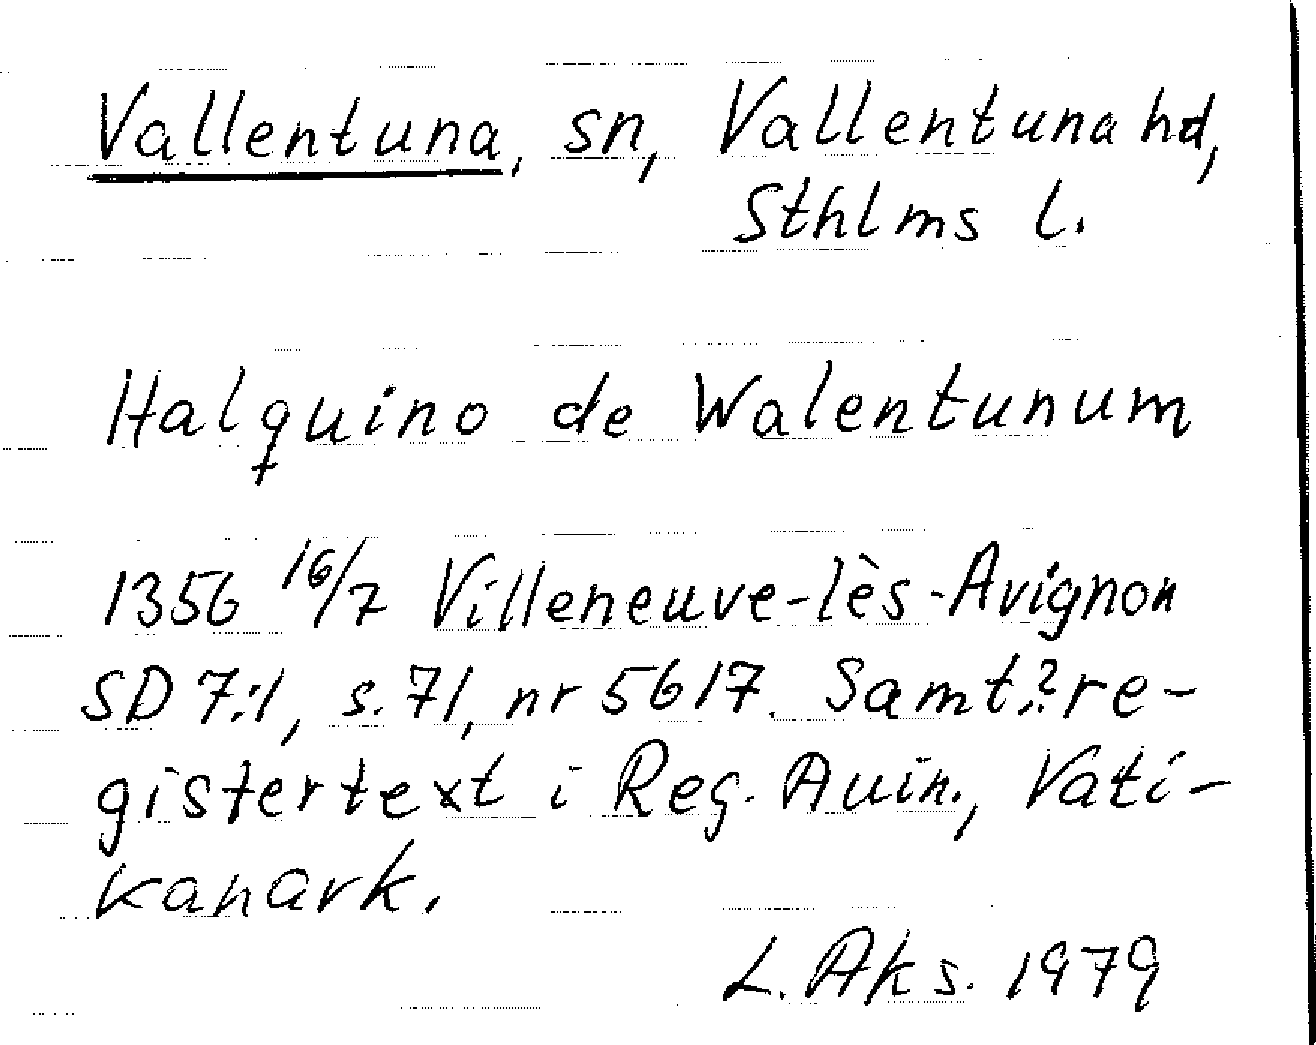 Vallentuna, sn, Vallentuna hd,
Sthlms l.
Halquino de Walentunum
1356 16/7 Villeneuve-lès-Avignon
SD 7:1, s. 71, nr 5617. Samt.? re-
gistertext i Reg. Auin., Vati-
kanark.
L. Aks. 1979